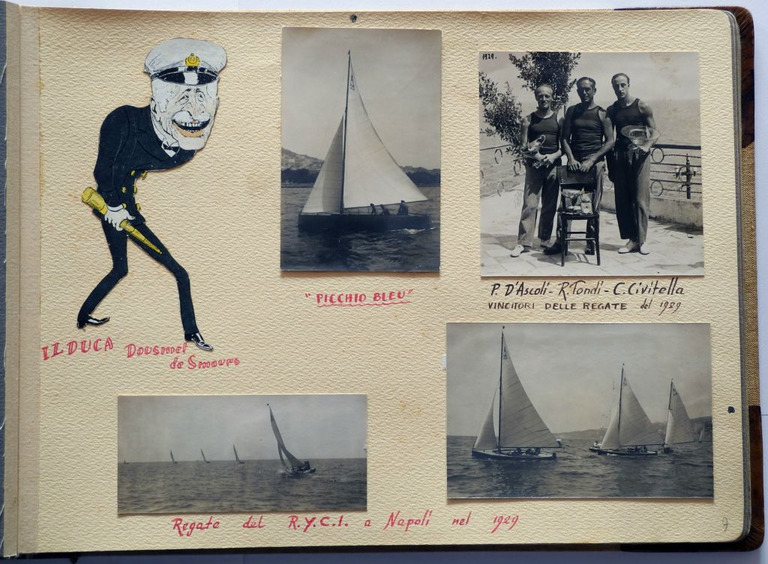 1929.
"PICCHIO BLEU"
P. D'Ascoli - R. Tondi - C. Civitella
VINCITORI DELLE REGATE del 1929
IL DUCA Dousmet
de Smours
Regate del R.Y.C.I. a Napoli nel 1929